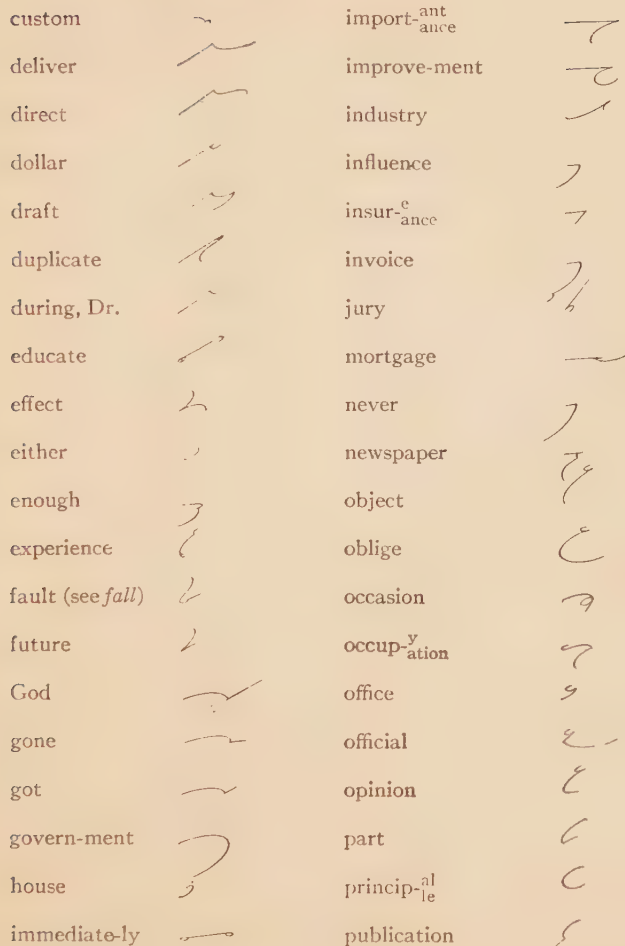 custom
deliver
direct
dollar
draft
duplicate
during, Dr.
educate
effect
either
enough
experience
fault (see fall)
future
God
gone
got
govern-ment
house
immediate-ly
import-ant ance
improve-ment
industry
influence
insur-e ance
invoice
jury
mortgage
never
newspaper
object
oblige
occasion
occup-y ation
office
official
opinion
part
princip-al le
publication